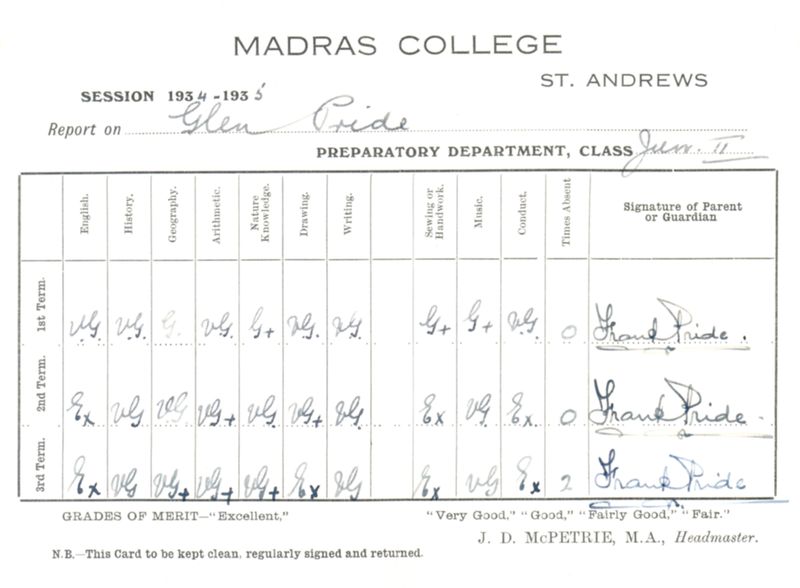 MADRAS COLLEGE
ST. ANDREWS
SESSION 1934-1935
Report on Glen Pride
PREPARATORY DEPARTMENT, CLASS Jun. II
English. History. Geography. Arithmetic. Nature Knowledge. Drawing. Writing. Sewing or Handwork. Music. Conduct. Times Absent Signature of Parent or Guardian
1st Term. V.G. V.G. G. V.G. G+ V.G. V.G. G+ G+ V.G. 0 Frank Pride.
2nd Term. Ex VG VG VG+ VG. VG+ VG. Ex VG. Ex. 0 Frank Pride
3rd Term. Ex VG VG+ VG+ VG+ Ex VG Ex VG Ex 2 Frank Pride
GRADES OF MERIT—"Excellent," "Very Good," "Good," "Fairly Good," "Fair."
J. D. McPETRIE, M.A., Headmaster.
N.B.—This Card to be kept clean, regularly signed and returned.